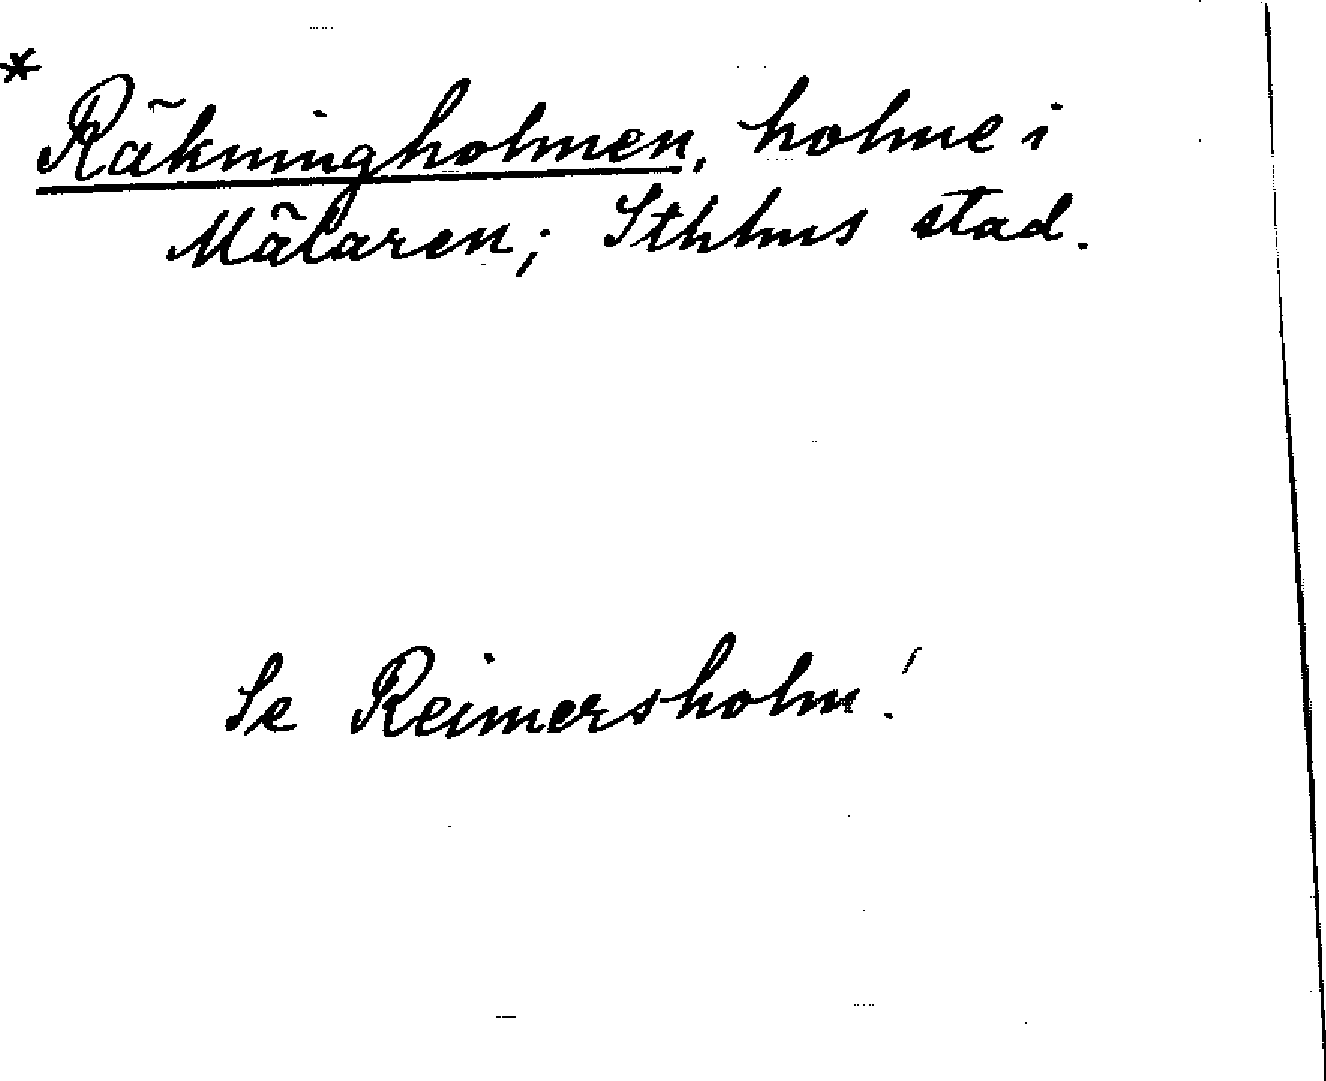 * Räkningholmen, holme i
Mälaren; Sthlms stad.
Se Reimersholm!